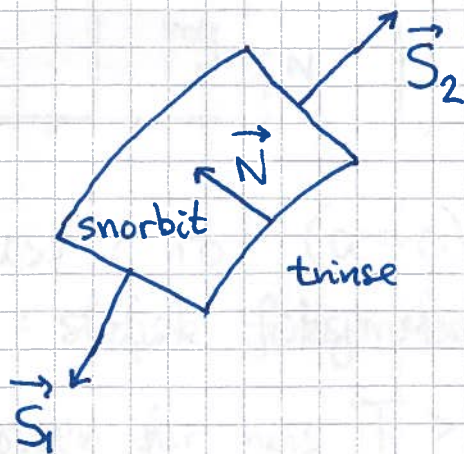 S⃗₂
N⃗
snorbit
trinse
S⃗₁